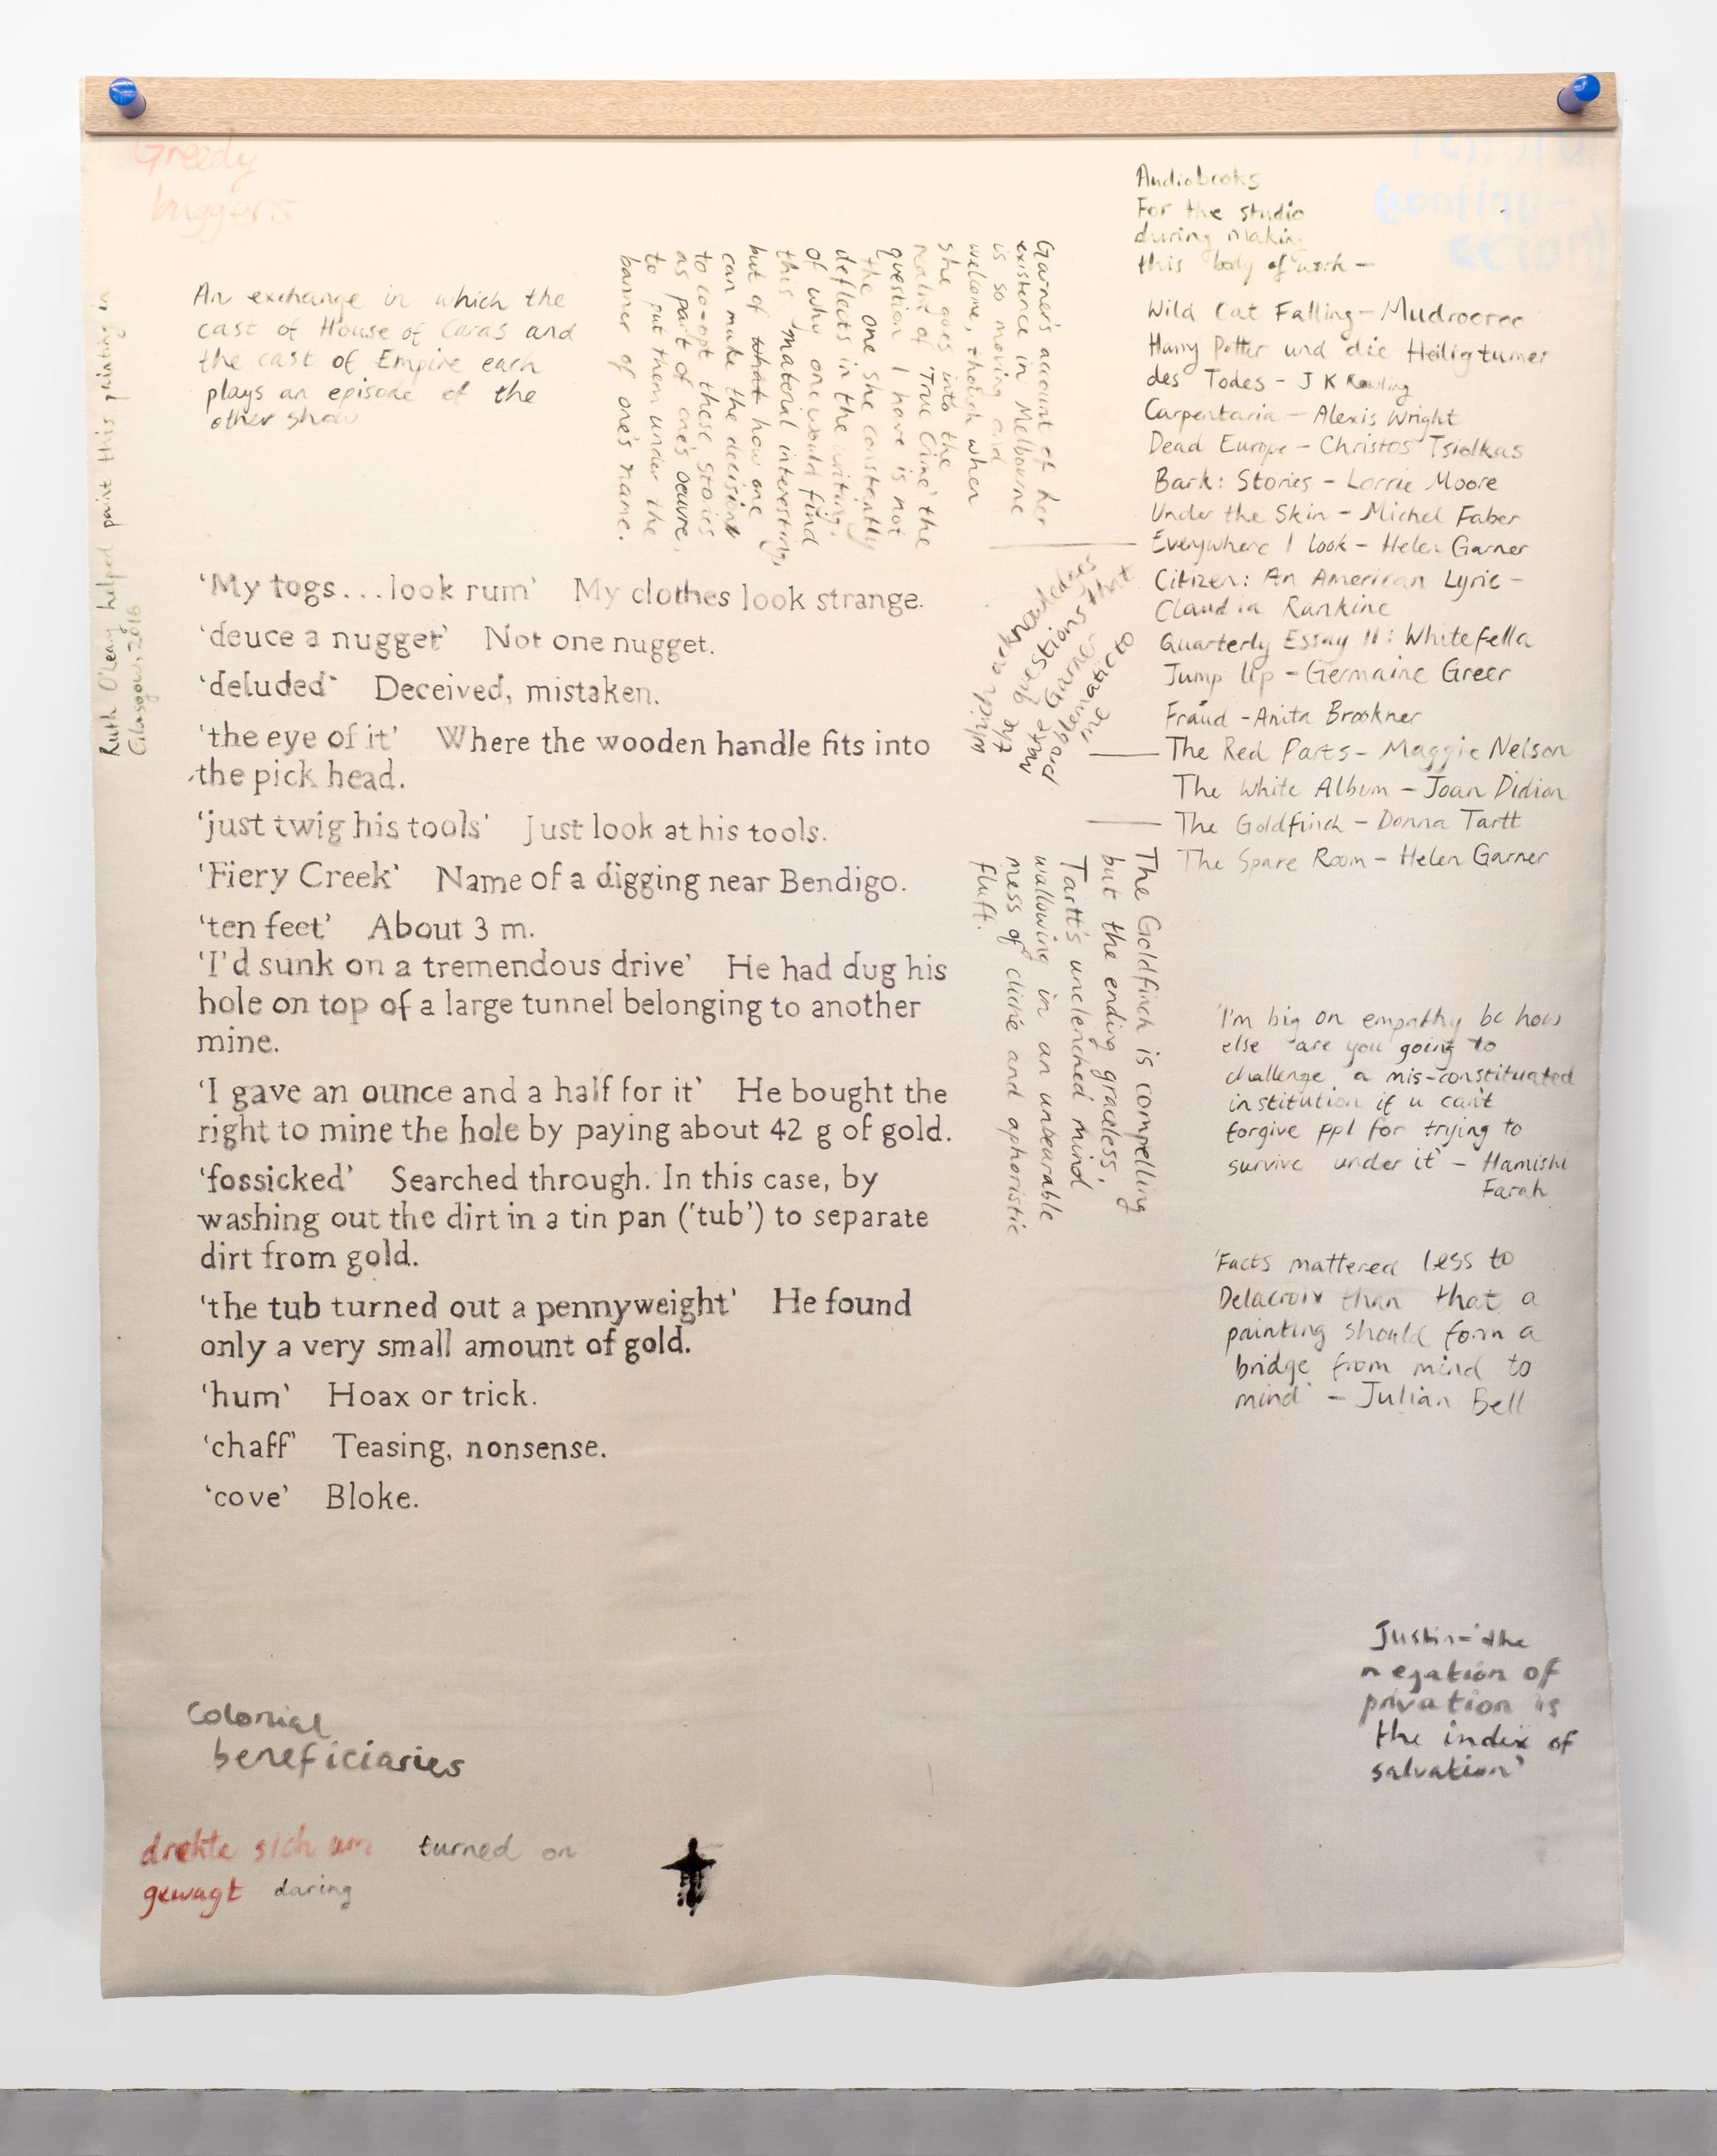 Greedy
buggers
An exchange in which the
cast of House of Caras and
the cast of Empire each
plays an episode of the
other show
Ruth O'Leary helped paint this painting in
Glasgow, 2016
Garner's account of her
existence in Melbourne
is so moving and
welcome, though when
she goes into the
realm of 'True Crime' the
question I have is not
the one she constantly
deflects in the writing,
of why one would find
this material interesting,
but of what how one
can make the decision
to co-opt these stories
as part of one's oeuvre,
to put them under the
banner of one's name.
'My togs...look rum' My clothes look strange.
'deuce a nugget' Not one nugget.
'deluded' Deceived, mistaken.
'the eye of it' Where the wooden handle fits into
the pick head.
'just twig his tools' Just look at his tools.
'Fiery Creek' Name of a digging near Bendigo.
'ten feet' About 3 m.
'I'd sunk on a tremendous drive' He had dug his
hole on top of a large tunnel belonging to another
mine.
'I gave an ounce and a half for it' He bought the
right to mine the hole by paying about 42 g of gold.
'fossicked' Searched through. In this case, by
washing out the dirt in a tin pan ('tub') to separate
dirt from gold.
'the tub turned out a pennyweight' He found
only a very small amount of gold.
'hum' Hoax or trick.
'chaff' Teasing, nonsense.
'cove' Bloke.
Audiobooks
For the studio
during making
this body of work –
Wild Cat Falling – Mudrooroo
Harry Potter und die Heiligtumer
des Todes – J K Rowling
Carpentaria – Alexis Wright
Dead Europe – Christos Tsiolkas
Bark: Stories – Lorrie Moore
Under the Skin – Michel Faber
Everywhere I Look – Helen Garner
Citizen: An American Lyric –
Claudia Rankine
Quarterly Essay 11: Whitefella
Jump Up – Germaine Greer
Fraud – Anita Brookner
The Red Parts – Maggie Nelson
The White Album – Joan Didion
The Goldfinch – Donna Tartt
The Spare Room – Helen Garner
which acknowledges
the questions that
make Garner
problematic to
me
The Goldfinch is compelling
but the ending graceless,
Tartt's unclenched mind
wallowing in an unbearable
mess of cliché and aphoristic
fluff.
'I'm big on empathy bc how
else are you going to
challenge a mis-constituated
institution if u can't
forgive ppl for trying to
survive under it' – Hamishi
Farah
'Facts mattered less to
Delacroix than that a
painting should form a
bridge from mind to
mind' – Julian Bell
Justin – 'the
negation of
privation is
the index of
salvation'
Colonial
beneficiaries
drehte sich um turned on
gewagt daring